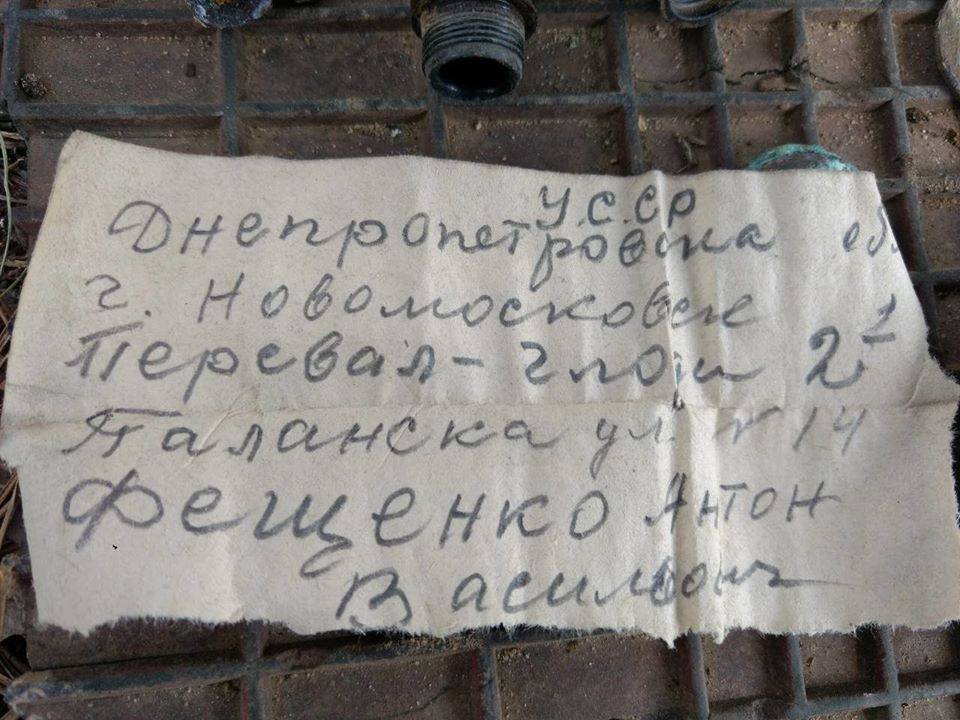 У.С.СР
Днепропетровска обл
г. Новомосковск
Перевал - 2 1
Таланска ул. № 14
Фещенко Антон
Василович